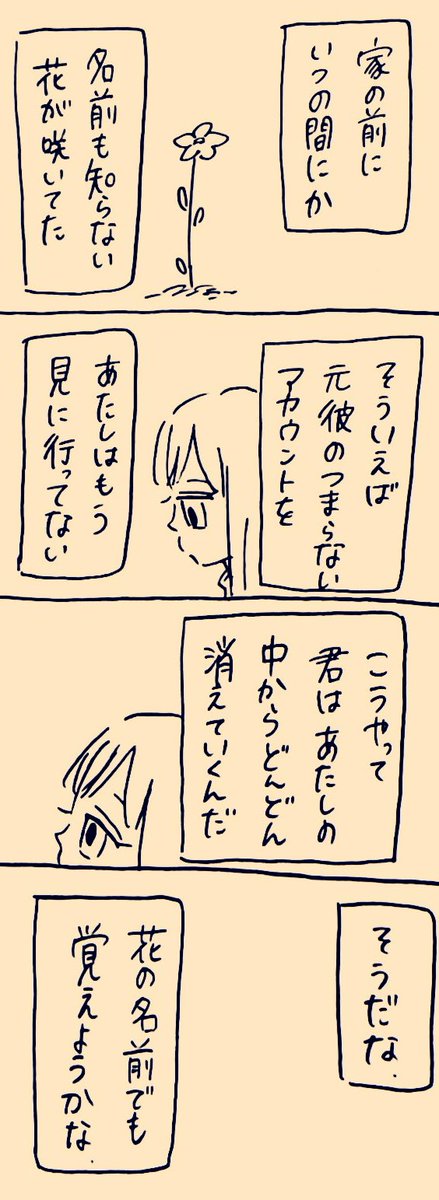 家の前に
いつの間にか
名前も知らない
花が咲いてた
そういえば
元彼のつまらない
アカウントを
あたしはもう
見に行ってない
こうやって
君はあたしの
中からどんどん
消えていくんだ
そうだな.
花の名前でも
覚えようかな.